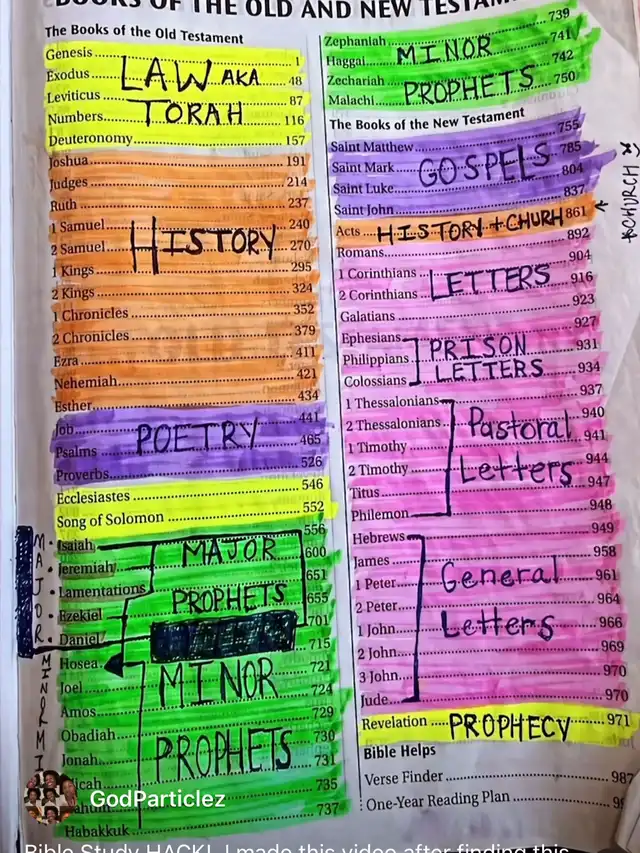 BOOKS OF THE OLD AND NEW TESTAM
The Books of the Old Testament
Genesis 1
Exodus 48
Leviticus 87
Numbers 116
Deuteronomy 157
LAW AKA
TORAH
Joshua 191
Judges 214
Ruth 237
1 Samuel 240
2 Samuel 270
1 Kings 295
2 Kings 324
1 Chronicles 352
2 Chronicles 379
Ezra 411
Nehemiah 421
Esther 434
HISTORY
Job 441
Psalms 465
Proverbs 526
POETRY
Ecclesiastes 546
Song of Solomon 552
Isaiah 556
Jeremiah 600
Lamentations 651
Ezekiel 655
Daniel 701
Hosea 715
Joel 721
Amos 724
Obadiah 729
Jonah 730
Micah 731
Nahum 735
Habakkuk 737
MAJOR
PROPHETS
MINOR
PROPHETS
MAJOR
MINOR
Zephaniah 739
Haggai 741
Zechariah 742
Malachi 750
MINOR
PROPHETS
The Books of the New Testament
Saint Matthew 755
Saint Mark 785
Saint Luke 804
Saint John 837
GOSPELS
Acts 861
HISTORY + CHURH
CHURCH
Romans 892
1 Corinthians 904
2 Corinthians 916
Galatians 923
LETTERS
Ephesians 927
Philippians 931
Colossians 934
PRISON
LETTERS
1 Thessalonians 937
2 Thessalonians 940
1 Timothy 941
2 Timothy 944
Titus 947
Philemon 948
Pastoral
Letters
Hebrews 949
James 958
1 Peter 961
2 Peter 964
1 John 966
2 John 969
3 John 970
Jude 970
General
Letters
Revelation 971
PROPHECY
Bible Helps
Verse Finder 987
One-Year Reading Plan
GodParticlez
Bible Study HACK! I made this video after finding this